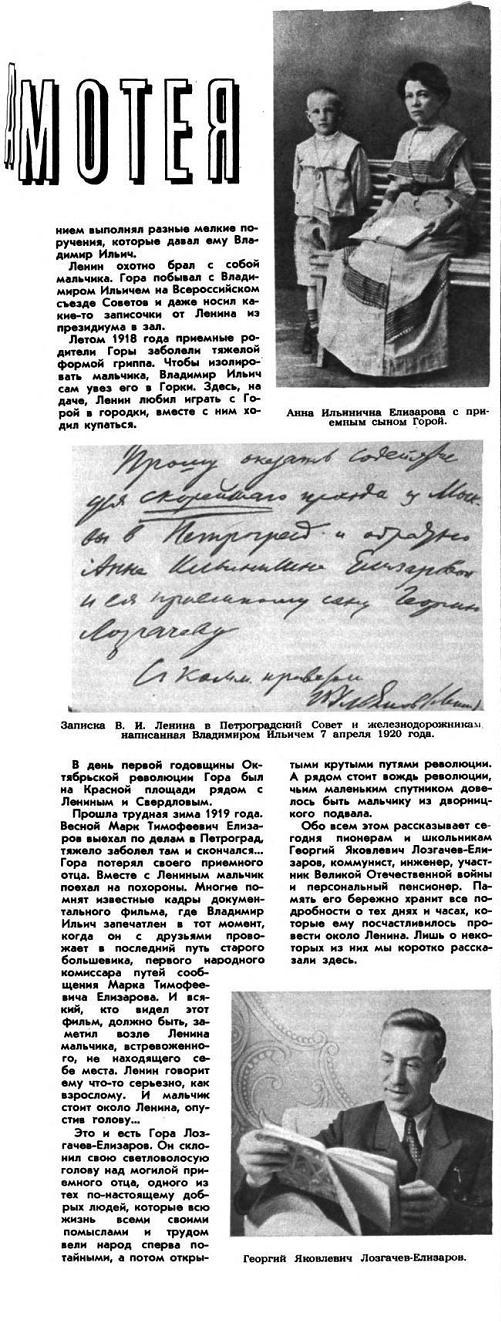 МОТЕЯ
нием выполнял разные мелкие по-
ручения, которые давал ему Вла-
димир Ильич.
Ленин охотно брал с собой
мальчика. Гора побывал с Влади-
миром Ильичем на Всероссийском
съезде Советов и даже носил ка-
кие-то записочки от Ленина из
президиума в зал.
Летом 1918 года приемные ро-
дители Горы заболели тяжелой
формой гриппа. Чтобы изолиро-
вать мальчика, Владимир Ильич
сам увез его в Горки. Здесь, на
даче, Ленин любил играть с Го-
рой в городки, вместе с ним хо-
дил купаться.
Анна Ильинична Елизарова с при-
емным сыном Горой.
Прошу оказать содействие
для скорейшего проезда из Моск-
вы в Петроград и обратно
Анне Ильиничне Елизаровой
и ея приемному сыну Георгию
Лозгачеву
С комм. приветом
Записка В. И. Ленина в Петроградский Совет и железнодорожникам,
написанная Владимиром Ильичем 7 апреля 1920 года.
В день первой годовщины Ок-
тябрьской революции Гора был
на Красной площади рядом с
Лениным и Свердловым.
Прошла трудная зима 1919 года.
Весной Марк Тимофеевич Елиза-
ров выехал по делам в Петроград,
тяжело заболел там и скончался...
Гора потерял своего приемного
отца. Вместе с Лениным мальчик
поехал на похороны. Многие по-
мнят известные кадры докумен-
тального фильма, где Владимир
Ильич запечатлен в тот момент,
когда он с друзьями прово-
жает в последний путь старого
большевика, первого народного
комиссара путей сооб-
щения Марка Тимофее-
вича Елизарова. И вся-
кий, кто видел этот
фильм, должно быть, за-
метил возле Ленина
мальчика, встревоженно-
го, не находящего се-
бе места. Ленин говорит
ему что-то серьезно, как
взрослому. И мальчик
стоит около Ленина, опу-
стив голову...
Это и есть Гора Лоз-
гачев-Елизаров. Он скло-
нил свою светловолосую
голову над могилой при-
емного отца, одного из
тех по-настоящему доб-
рых людей, которые всю
жизнь всеми своими
помыслами и трудом
вели народ сперва по-
тайными, а потом откры-
тыми крутыми путями революции.
А рядом стоит вождь революции,
чьим маленьким спутником дове-
лось быть мальчику из дворниц-
кого подвала.
Обо всем этом рассказывает се-
годня пионерам и школьникам
Георгий Яковлевич Лозгачев-Ели-
заров, коммунист, инженер, участ-
ник Великой Отечественной войны
и персональный пенсионер. Па-
мять его бережно хранит все по-
дробности о тех днях и часах, ко-
торые ему посчастливилось про-
вести около Ленина. Лишь о неко-
торых из них мы коротко расска-
зали здесь.
Георгий Яковлевич Лозгачев-Елизаров.